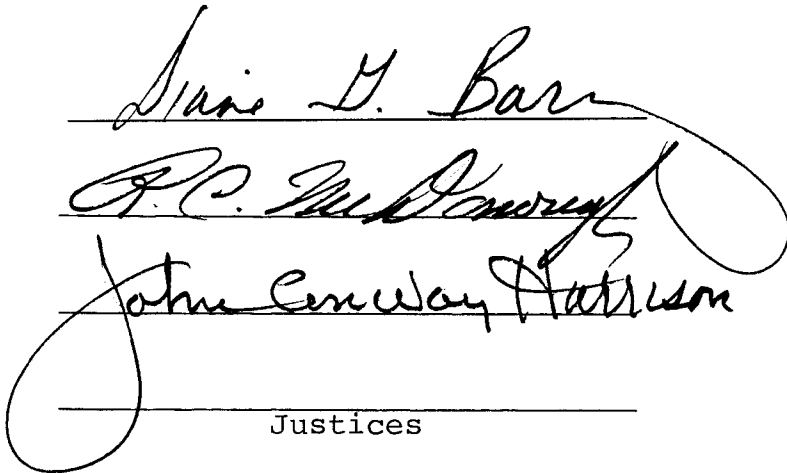 Diane G. Barz
R. C. McDonough
John Conway Harrison
Justices